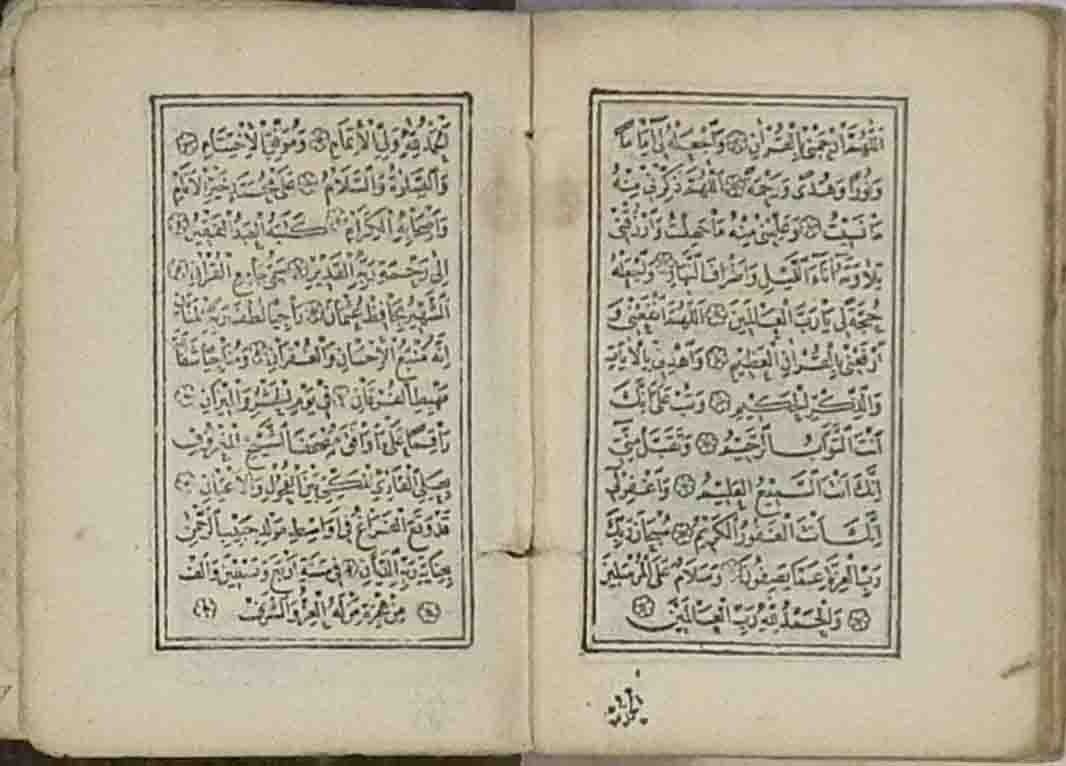 اللَّهُمَّ ارْحَمْنِي بِالْقُرْآنِ وَاجْعَلْهُ لِي إِمَامًا
وَنُورًا وَهُدًى وَرَحْمَةً اللَّهُمَّ ذَكِّرْنِي مِنْهُ
مَا نَسِيتُ وَعَلِّمْنِي مِنْهُ مَا جَهِلْتُ وَارْزُقْنِي
تِلَاوَتَهُ آنَاءَ اللَّيْلِ وَأَطْرَافَ النَّهَارِ وَاجْعَلْهُ
حُجَّةً لِي يَا رَبَّ الْعَالَمِينَ اللَّهُمَّ انْفَعْنِي وَ
ارْفَعْنِي بِالْقُرْآنِ الْعَظِيمِ وَاهْدِنِي بِالْآيَاتِ
وَالذِّكْرِ الْحَكِيمِ وَتُبْ عَلَيَّ إِنَّكَ
أَنْتَ التَّوَّابُ الرَّحِيمُ وَتَقَبَّلْ مِنِّي
إِنَّكَ أَنْتَ السَّمِيعُ الْعَلِيمُ وَاغْفِرْ لِي
إِنَّكَ أَنْتَ الْغَفُورُ الْكَرِيمُ سُبْحَانَ رَبِّكَ
رَبِّ الْعِزَّةِ عَمَّا يَصِفُونَ وَسَلَامٌ عَلَى الْمُرْسَلِينَ
وَالْحَمْدُ لِلَّهِ رَبِّ الْعَالَمِينَ
الْحَمْدُ لِلَّهِ وَلِيِّ الْإِتْمَامِ وَمُوَفِّقِ الْاِخْتِتَامِ
وَالصَّلَوةُ وَالسَّلَامُ عَلَى مُحَمَّدٍ خَيْرِ الْأَنَامِ
وَأَصْحَابِهِ الْكِرَامِ كَتَبَهُ الْعَبْدُ الْفَقِيرُ
إِلَى رَحْمَةِ رَبِّهِ الْقَدِيرِ سَمِيُّ جَامِعِ الْقُرْآنِ
الشَّهِيرُ بِحَافِظْ عُثْمَانَ رَاجِيًا لُطْفَ رَبِّهِ
إِنَّهُ مَنْبَعُ الْإِحْسَانِ وَالْغُفْرَانِ
مَهْبِطِ الْفُرْقَانِ فِي يَوْمِ الْحَشْرِ وَالْمِيزَانِ
مُصْحَفَ الشَّيْخِ الْمَعْرُوفِ
بِعَلِيٍّ الْقَارِي الْمَكِّيِّ بَيْنَ الْفُحُولِ وَالْأَعْيَانِ
قَدْ وَقَعَ الْفَرَاغُ فِي أَوَاسِطِ مَوْلِدِ حَبِيبِ الرَّحْمٰنِ
بِعِنَايَةِ رَبِّهِ فِي سَنَةِ أَرْبَعٍ وَتِسْعِينَ وَأَلْفٍ
مِنْ هِجْرَةِ مَنْ لَهُ الْعِزُّ وَالشَّرَفُ